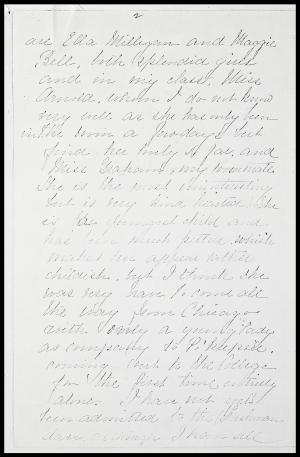 2
are Ella Millegan and Maggie
Bell, both splendid girls
and in my class. Miss
Arnold, whom I do not know
very well as she has only been
in the town a few days but
find her lively so far, and
Miss Graham, my roommate
She is the most uninteresting
but is very kind hearted. She
is a spoiled child and
has been much petted, which
makes her appear rather
childish, but I think she
was very brave to come all
the way from Chicago
with only a young lady
as company to
coming out to the College
for the first time entirely
alone. I have not yet
been admitted to the Freshman
class, although I have all